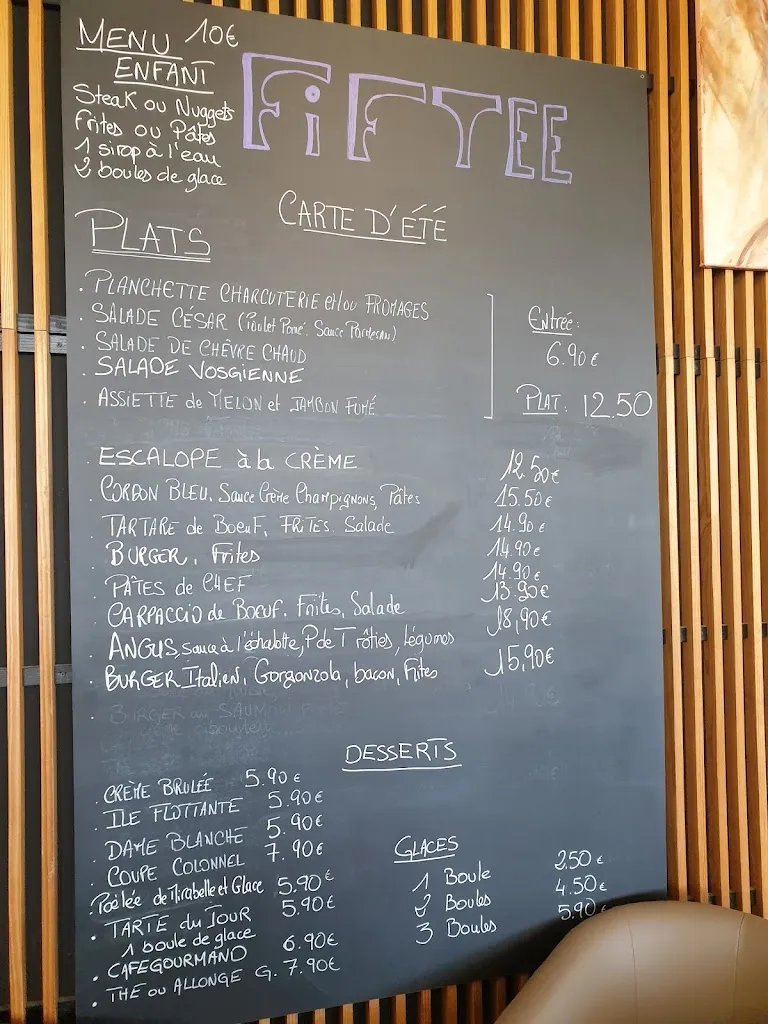 MENU 10€
ENFANT
Steak ou Nuggets
Frites ou Pâtes
1 sirop à l'eau
2 boules de glace
FiFTEE
CARTE D'ÉTÉ
PLATS
. PLANCHETTE CHARCUTERIE et/ou FROMAGES
. SALADE CÉSAR (Poulet Pané, Sauce Parmesan)
. SALADE DE CHÈVRE CHAUD
. SALADE VOSGIENNE
. ASSIETTE de MELON et JAMBON FUMÉ
Entrée:
6.90€
PLAT: 12.50
. ESCALOPE à la CRÈME 12.50€
. CORDON BLEU, Sauce Crème Champignons, Pâtes 15.50€
. TARTARE de BoeuF, FRiTES. Salade 14.90€
. BURGER, Frites 14.90€
. PÂTES de CHEF 14.90€
. CARPACCIO de Boeuf. Frites, Salade 13.90€
. ANGUS, sauce à l'échalotte, P de T rôties, Légumes 18,90€
. BURGER Italien, Gorgonzola, bacon, Frites 15,90€
. BURGER au SAUMON
DESSERTS
. CRÈME BRULÉE 5.90€
. ILE FLOTTANTE 5.90€
. DAME BLANCHE 5.90€
. COUPE COLONNEL 7.90€
. Poêlée de Mirabelle et Glace 5.90€
. TARTE du JOUR 5.90€
1 boule de glace
. CAFE GOURMAND 6.90€
. THE ou ALLONGE G. 7.90€
GLACES
1 Boule 2.50€
2 Boules 4.50€
3 Boules 5.90€